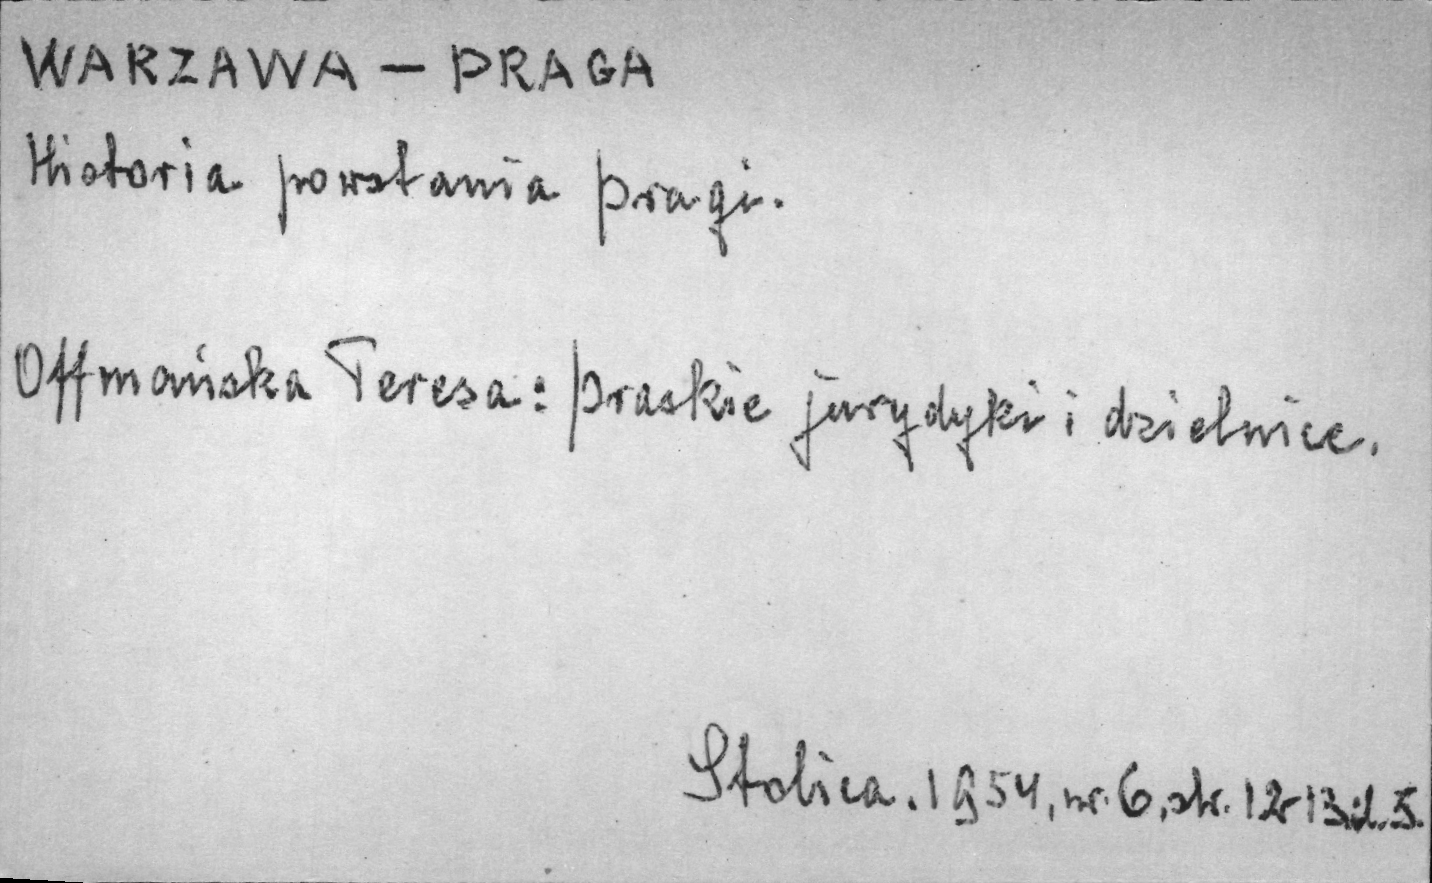 WARZAWA – PRAGA
Historia powstania Pragi.
Offmańska Teresa: Praskie jurydyki i dzielnice.
Stolica. 1954, nr. 6, str. 12-13, il. 5.